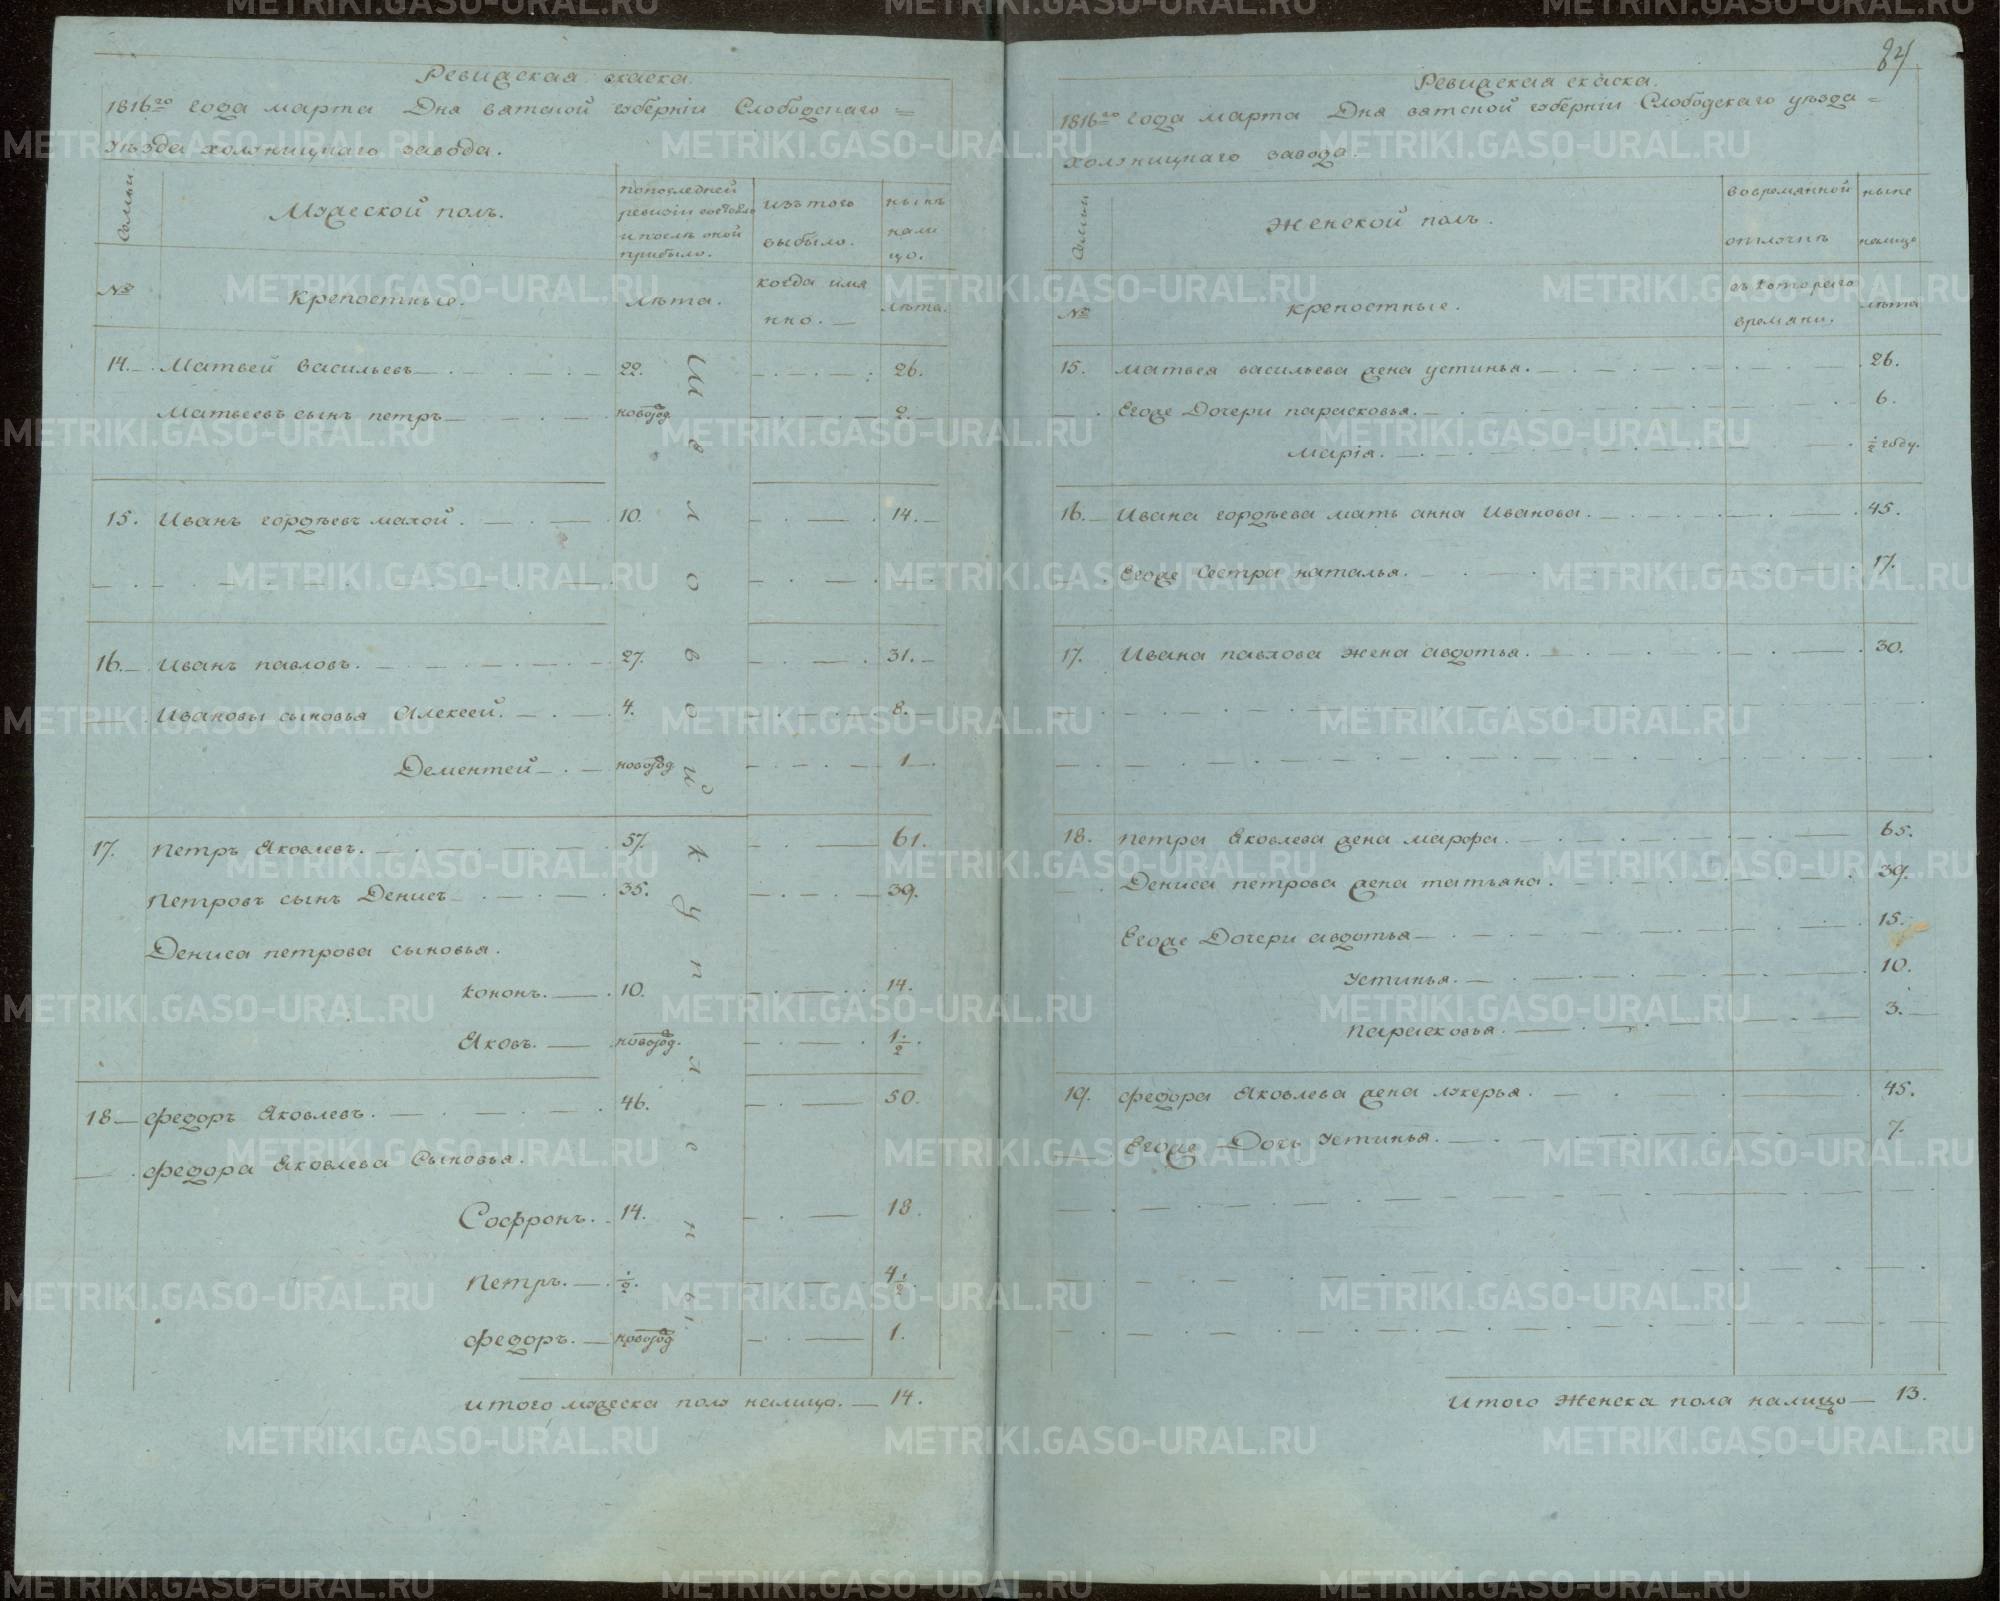 Ревижская скаска.
1816го года марта Дня вятской губерніи Слободскаго =
уѣзда холуницкаго завода.
Семьи
Мужеской полъ.
попоследней
ревизіи состояло
и послѣ оной
прибыло.
изъ того
выбыло.
нынѣ
нали
цо.
№
крепостные.
лѣта.
когда имя
нно.
лѣта.
14. Матвей васильевъ 22. 26.
Матвеевъ сынъ петръ новород 2.
15. Иванъ гордѣевъ малой. 10. 14.
16. Иванъ павловъ. 27. 31.
Ивановы сыновья Алексей. 4. 8.
Дементей новород 1
17. петръ Яковлевъ. 57. 61.
петровъ сынъ Денисъ 35. 39.
Дениса петрова сыновья.
кононъ. 10. 14.
Яковъ. новород. 1 1/2.
18 федоръ Яковлевъ. 46. 50.
федора Яковлева Сыновья.
Софронъ. 14. 18.
петръ. 1/2. 4 1/2.
федоръ. новород 1.
Шевловой куплены
итого мужеска полу налицо. 14.
84
Ревижская скаска.
1816го года марта Дня вятской губерніи Слободскаго уѣзда =
холуницкаго завода.
Семьи
женской полъ.
вовремянной
отлучкѣ
ныне
налицо
№
крепостные.
съ котораго
времяни.
лѣта
15. матвея васильева жена устинья. 26.
Егоже Дочери парасковья. 6.
марія. 1/2 году.
16. Ивана гордѣева мать анна Иванова. 45.
Егоже Сестра наталья. 17.
17. Ивана павлова жена авдотья. 30.
18. петра Яковлева жена марфа. 65.
Дениса петрова жена татьяна. 39.
Егоже Дочери авдотья 15.
Устинья. 10.
парасковья. 3.
19. федора Яковлева жена лукерья. 45.
Егоже Дочь Устинья. 7.
Итого Женска пола налицо 13.
METRIKI.GASO-URAL.RU